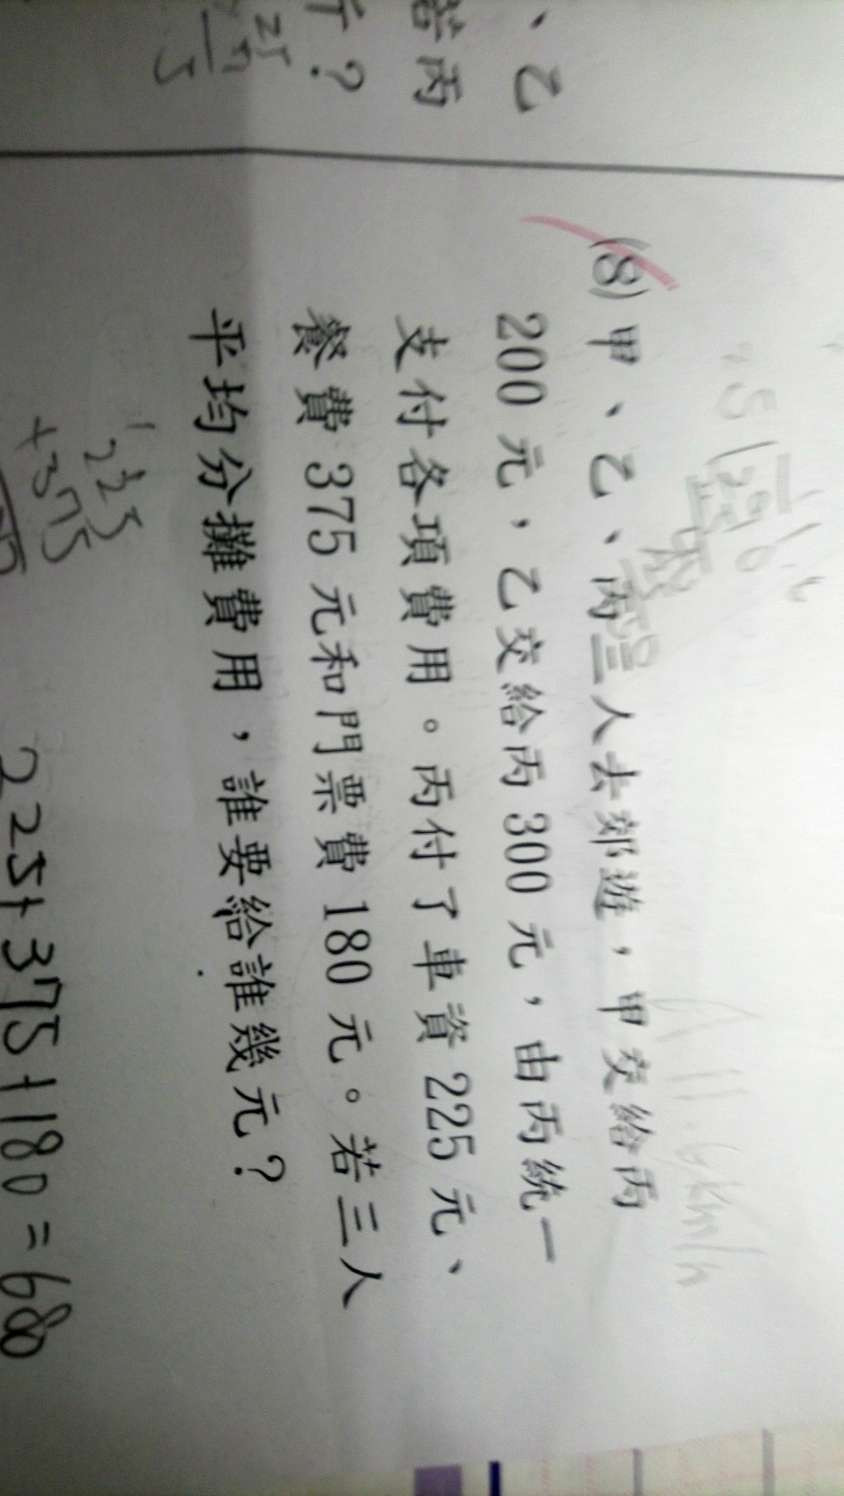 、乙
若丙
?
(8)甲、乙、丙三人去郊遊,甲交給丙
200元,乙交給丙300元,由丙統一
支付各項費用。丙付了車資225元、
餐費375元和門票費180元。若三人
平均分攤費用,誰要給誰幾元?
225
+375
225+375+180=680